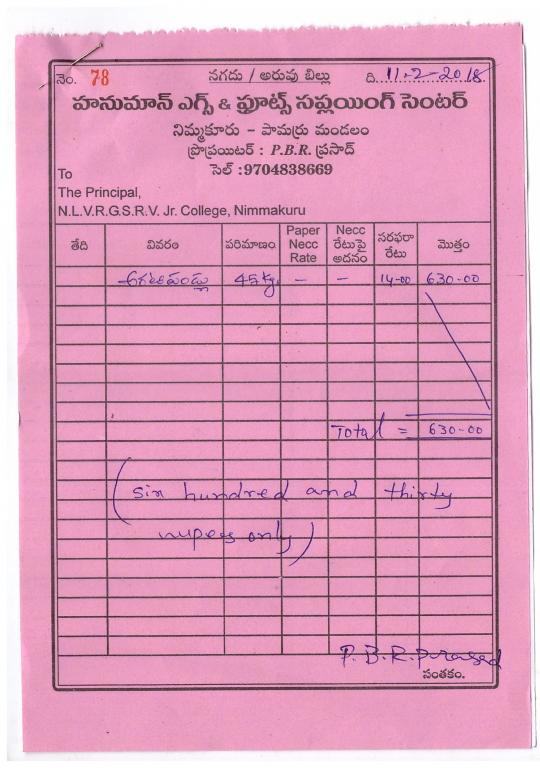 నెం. 78 నగదు / అరువు బిల్లు ది. 11-2-2018
హనుమాన్ ఎగ్స్ & ఫ్రూట్స్ సప్లయింగ్ సెంటర్
నిమ్మకూరు - పామర్రు మండలం
ప్రొప్రయిటర్ : P.B.R. ప్రసాద్
సెల్ :9704838669
To
The Principal,
N.L.V.R.G.S.R.V. Jr. College, Nimmakuru
తేది వివరం పరిమాణం Paper Necc Rate Necc రేటుపై అదనం సరఫరా రేటు మొత్తం
45kg - - 14-00 630-00
Total = 630-00
(six hundred and thirty
rupees only)
P. B. R. Prasad
సంతకం.